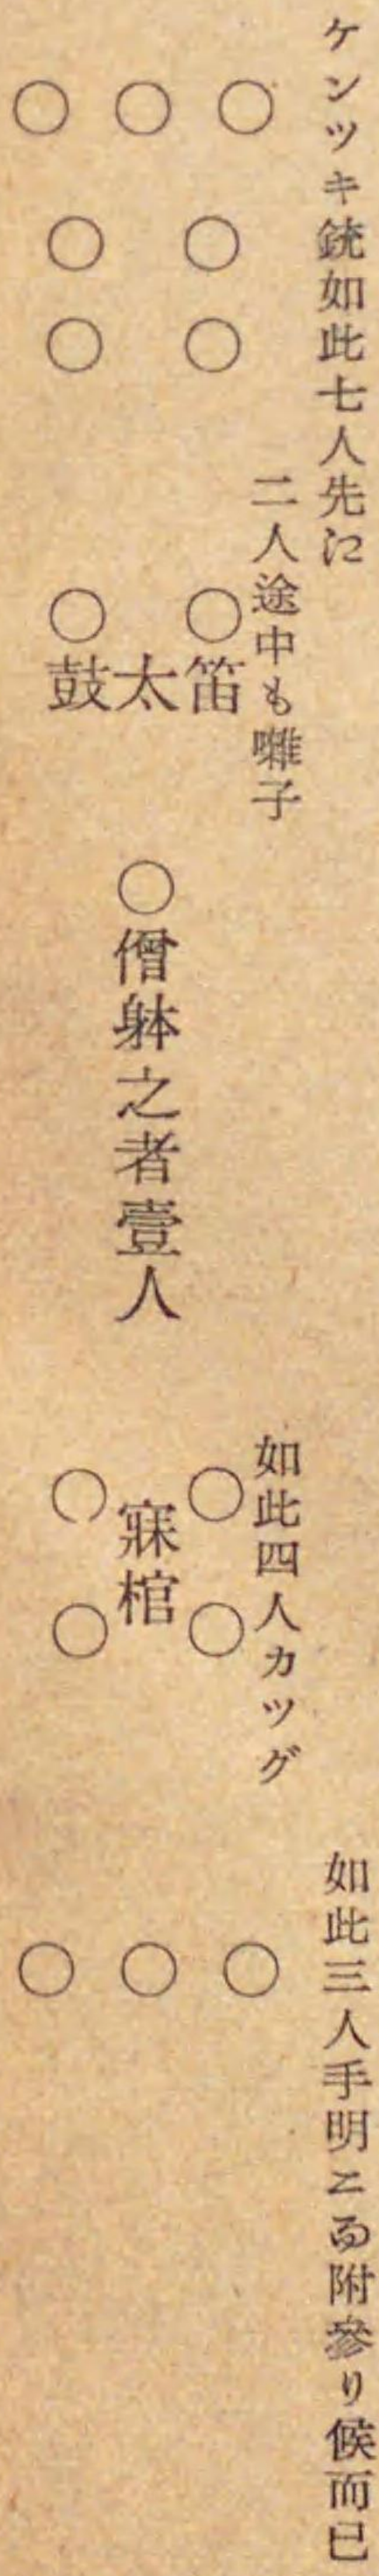 ケンツキ銃如此七人先に
○ ○ ○
○ ○
○ ○
二人途中も囃子
○笛
○太鼓
○僧躰之者壹人
如此四人カツグ
○ ○
寐棺
○ ○
如此三人手明ニ而附參り候而已
○ ○ ○